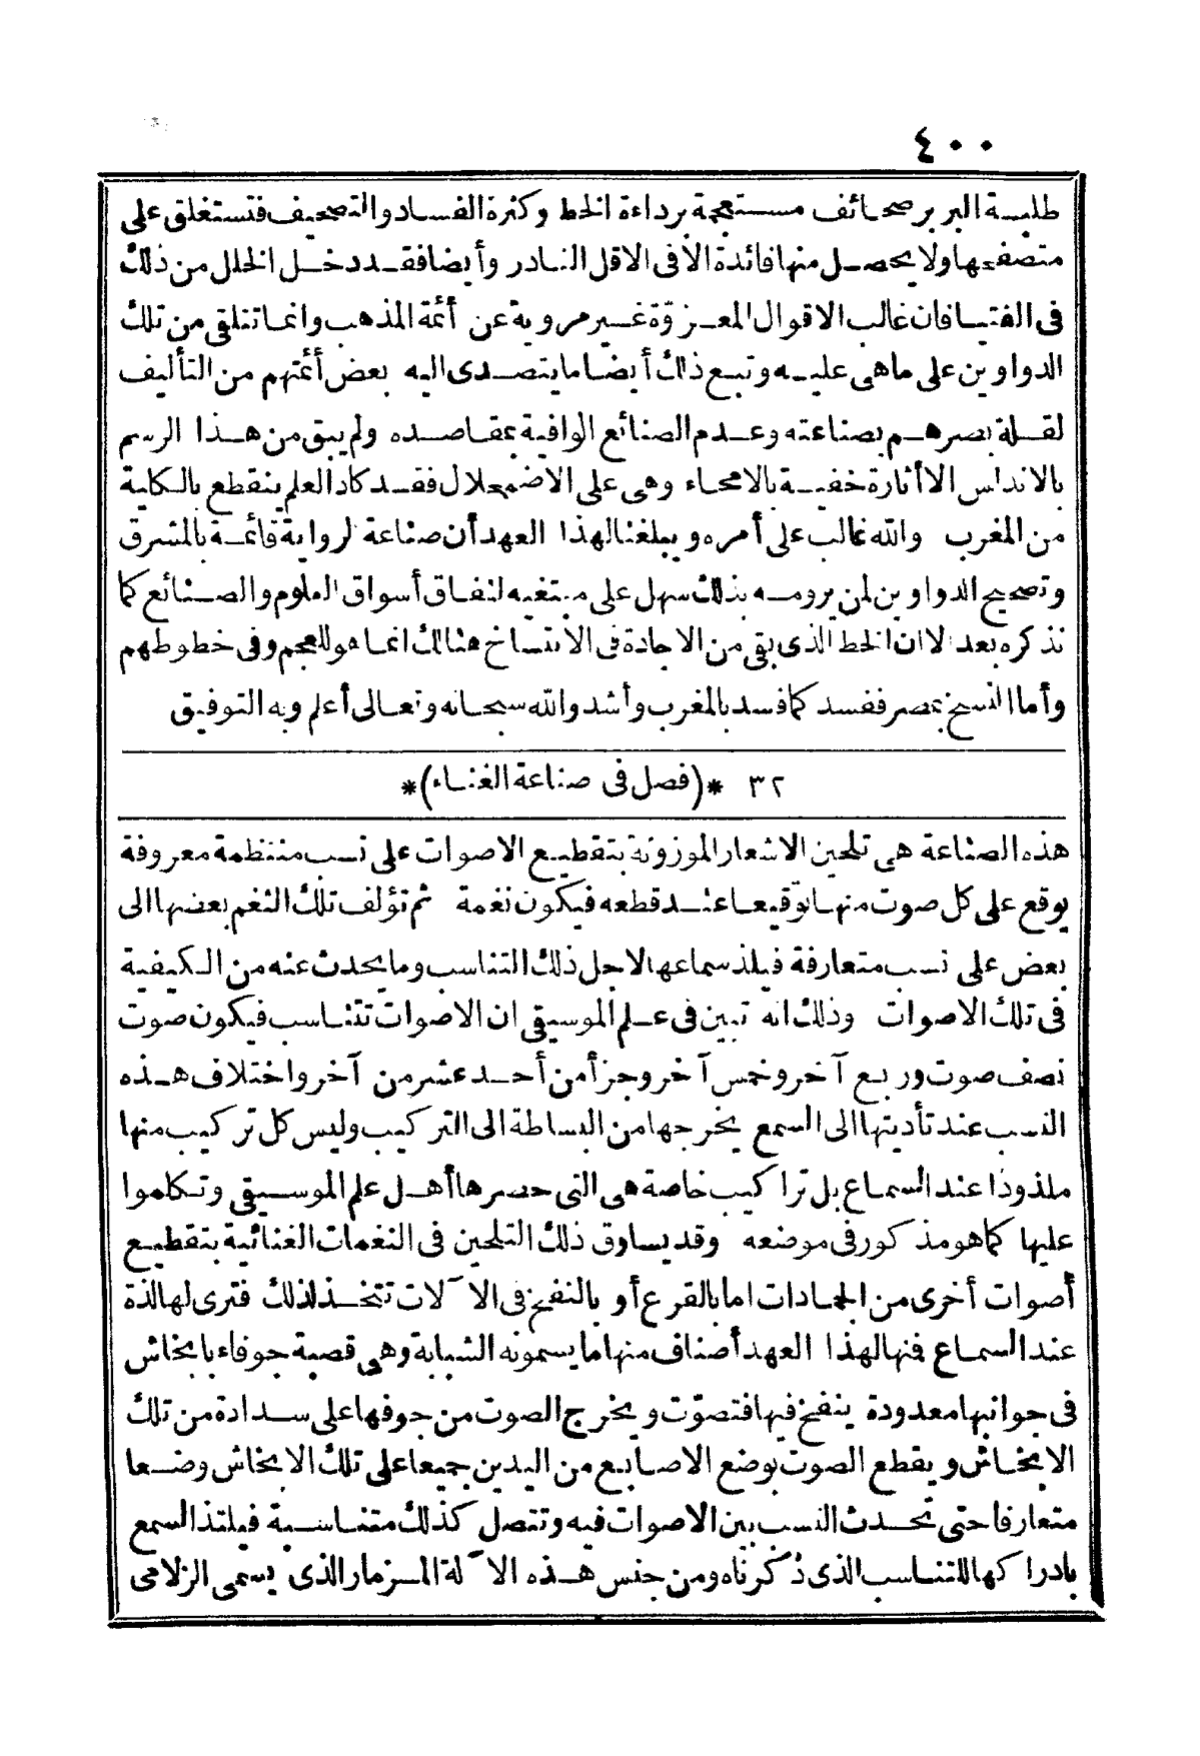 ٤٠٠
طلبة البربر صحائف مستعجمة برداءة الخط وكثرة الفساد والتصحيف فتستغلق على
متصفحها ولا يحصل منها فائدة الا فى الاقل النادر وأيضا فقد دخل الخلل من ذلك
فى الفتيا فان غالب الاقوال المعزوّة غير مروية عن أئمة المذهب وانما تتلقى من تلك
الدواوين على ما هى عليه وتبع ذلك أيضا ما يتصدى اليه بعض أئمتهم من التأليف
لقلة بصرهم بصناعته وعدم الصنائع الوافية بمقاصده ولم يبق من هذا الرسم
بالاندلس الا أثارة خفية بالامحاء وهى على الاضمحلال فقد كاد العلم ينقطع بالكلية
من المغرب والله غالب على أمره ويبلغنا لهذا العهد أن صناعة الرواية قائمة بالمشرق
وتصحيح الدواوين لمن يرومه بذلك سهل على مبتغيه لنفاق أسواق العلوم والصنائع كما
نذكره بعد الا ان الخط الذى بقى من الاجادة فى الانتساخ هنالك انما هو للعجم وفى خطوطهم
وأما النسخ بمصر ففسد كما فسد بالمغرب وأشد والله سبحانه وتعالى أعلم وبه التوفيق
٣٢ *(فصل فى صناعة الغناء)*
هذه الصناعة هى تلحين الاشعار الموزونة بتقطيع الاصوات على نسب منتظمة معروفة
يوقع على كل صوت منها توقيعا عند قطعه فيكون نغمة ثم تؤلف تلك النغم بعضها الى
بعض على نسب متعارفة فيلذ سماعها لاجل ذلك التناسب وما يحدث عنه من الكيفية
فى تلك الاصوات وذلك انه تبين فى علم الموسيقى ان الاصوات تتناسب فيكون صوت
نصف صوت وربع آخر وخمس آخر وجزأ من أحد عشر من آخر واختلاف هذه
النسب عند تأديتها الى السمع يخرجها من البساطة الى التركيب وليس كل تركيب منها
ملذوذا عند السماع بل تراكيب خاصة هى التى حصرها أهل علم الموسيقى وتكلموا
عليها كما هو مذكور فى موضعه وقد يساوق ذلك التلحين فى النغمات الغنائية بتقطيع
أصوات أخرى من الجمادات اما بالقرع أو بالنفخ فى الآلات تتخذ لذلك فترى لها لذة
عند السماع فنها لهذا العهد أصناف منها ما يسمونه الشبابة وهى قصبة جوفاء بابخاش
فى جوانبها معدودة ينفخ فيها فتصوّت ويخرج الصوت من جوفها على سدادة من تلك
الابخاش ويقطع الصوت بوضع الاصابع من اليدين جميعا على تلك الابخاش وضعا
متعارفا حتى تحدث النسب بين الاصوات فيه وتتصل كذلك متناسبة فيلتذ السمع
بادراكها للتناسب الذى ذكرناه ومن جنس هذه الآلة المزمار الذى يسمى الزلامى